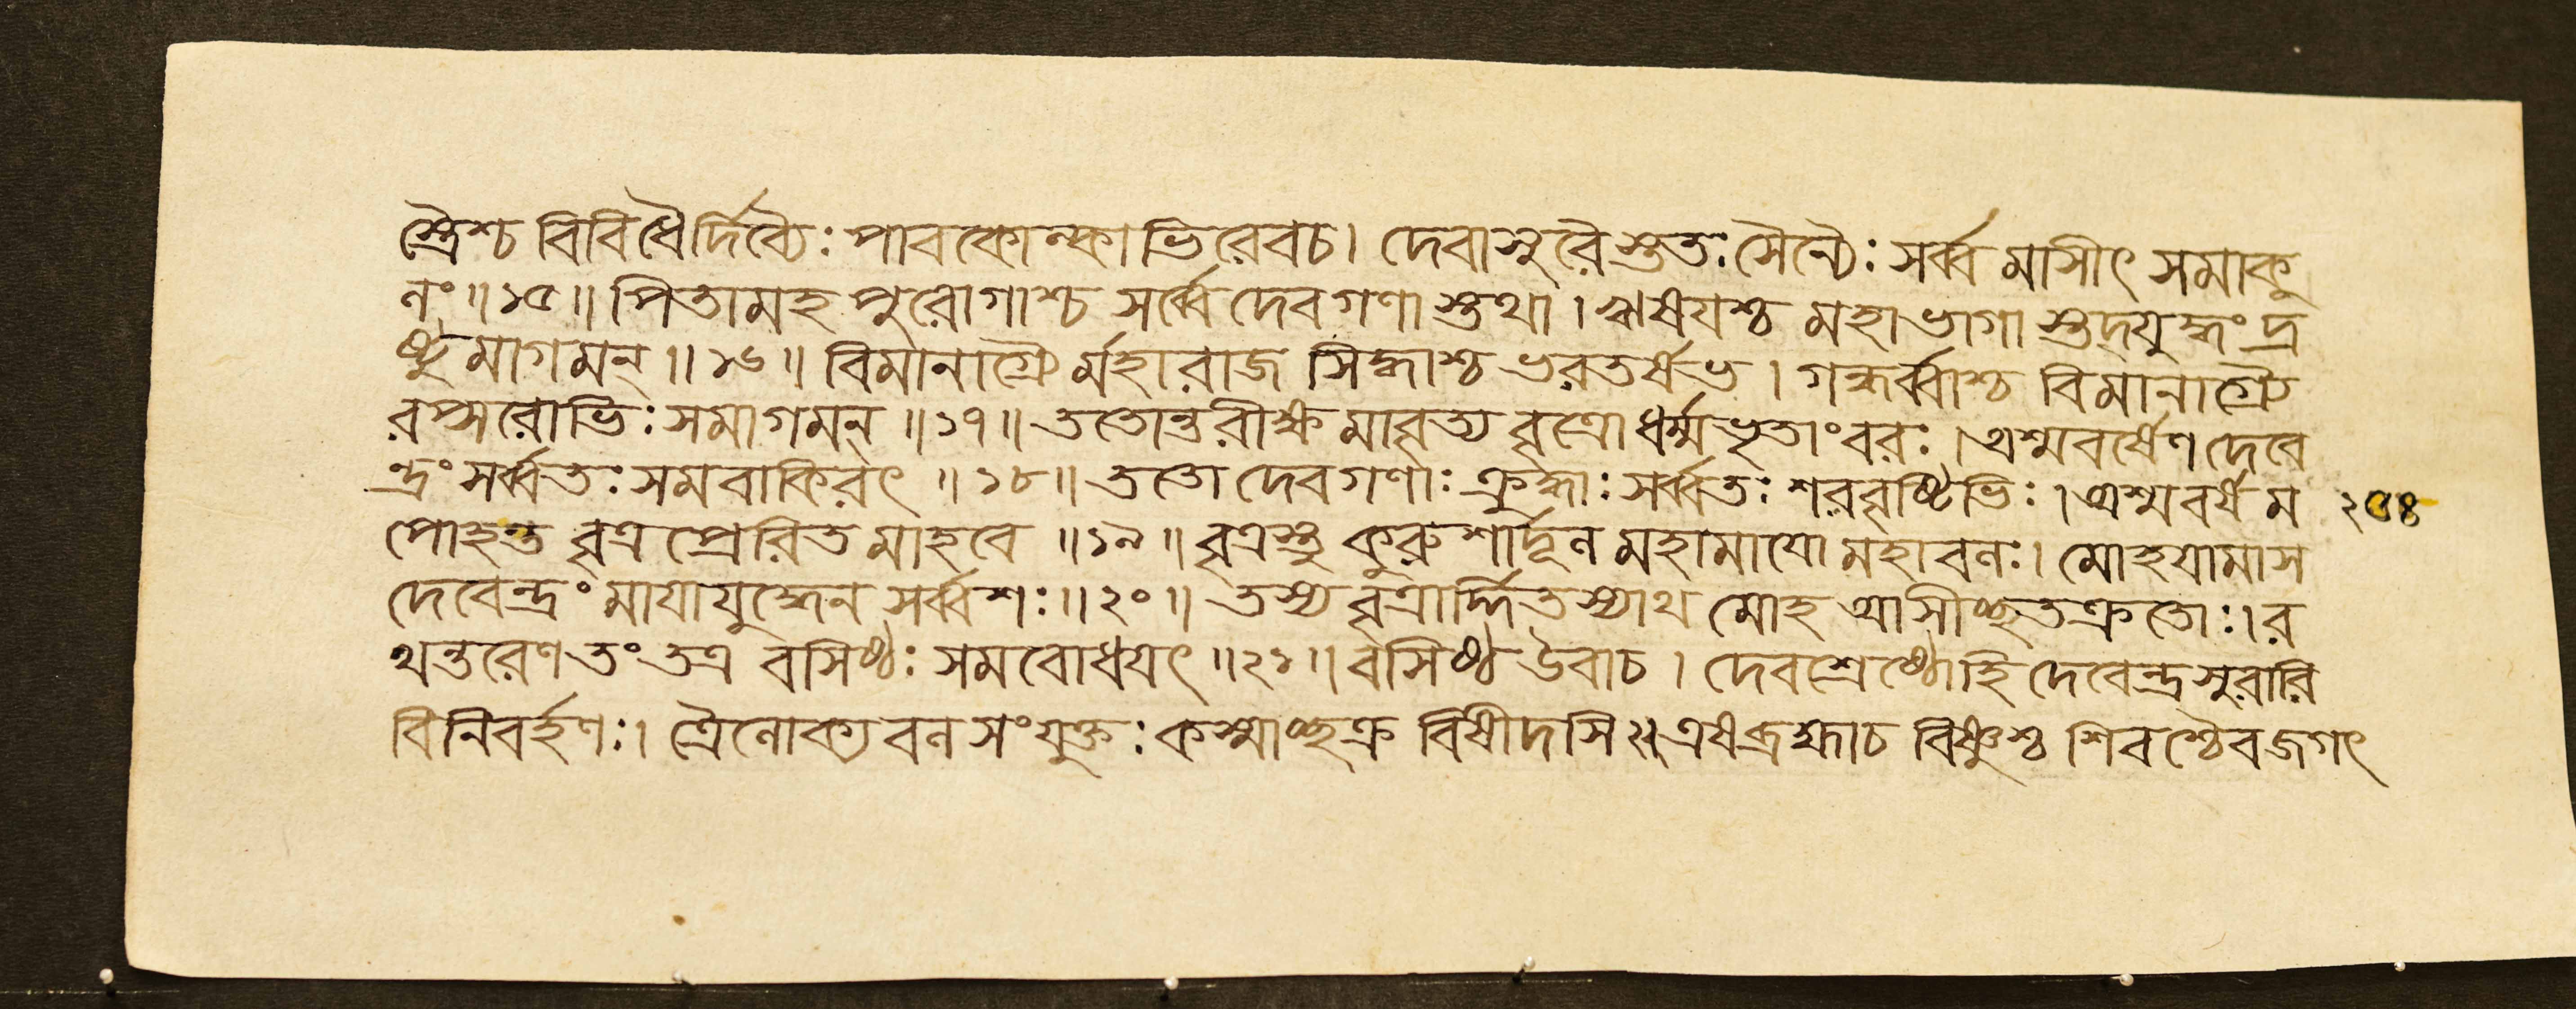 স্ত্রৈশ্চ বিবিধৈর্দিব্যৈঃ পাবকোল্কাভিরেবচ। দেবাসুরৈস্ততঃ সৈন্যৈঃ সর্ব্বমাসীৎ সমাকু
লং॥১৫॥ পিতামহ পুরোগাশ্চ সর্ব্বে দেবগণাস্তথা। ঋষযশ্চ মহাভাগাস্তদ্যুদ্ধং দ্র
ষ্টুমাগমন্॥১৬॥ বিমানাগ্রৈর্মহারাজ সিদ্ধাশ্চ ভরতর্ষভ। গন্ধর্ব্বাশ্চ বিমানাগ্রৈ
রপ্সরোভিঃ সমাগমন্॥১৭॥ ততোন্তরীক্ষমাবৃত্য বৃত্রো ধর্ম্মভৃতাংবরঃ। অশ্মবর্ষেণ দেবে
ন্দ্রং সর্ব্বতঃ সমবাকিরৎ॥১৮॥ ততো দেবগণাঃ ক্রুদ্ধাঃ সর্ব্বতঃ শরবৃষ্টিভিঃ। অশ্মবর্ষম ২৩৪
পোহন্ত বৃত্রপ্রেরিতমাহবে॥১৯॥ বৃত্রস্তু কুরুশার্দূল মহামাযো মহাবলঃ। মোহযামাস
দেবেন্দ্রং মাযাযুদ্ধেন সর্ব্বশঃ॥২০॥ তস্য বৃত্রার্দ্দিতস্যাথ মোহ আসীচ্ছতক্রতোঃ। র
থন্তরেণ তং তত্র বসিষ্ঠঃ সমবোধযৎ॥২১॥ বসিষ্ঠ উবাচ। দেবশ্রেষ্ঠোহি দেবেন্দ্র সুরারি
বিনিবর্হণঃ। ত্রৈলোক্যবলসংযুক্তঃ কস্মাচ্ছক্র বিষীদসি॥২২॥ এষব্রহ্মাচ বিষ্ণুশ্চ শিবশ্চৈব জগৎ